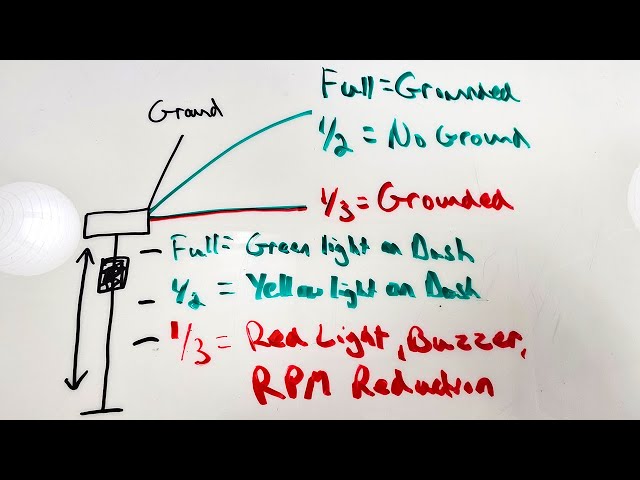 Ground
Full=Grounded
1/2 = No Ground
1/3 = Grounded
Full= Green light on Dash
1/2 = Yellow light on Dash
1/3 = Red Light, Buzzer,
RPM Reduction